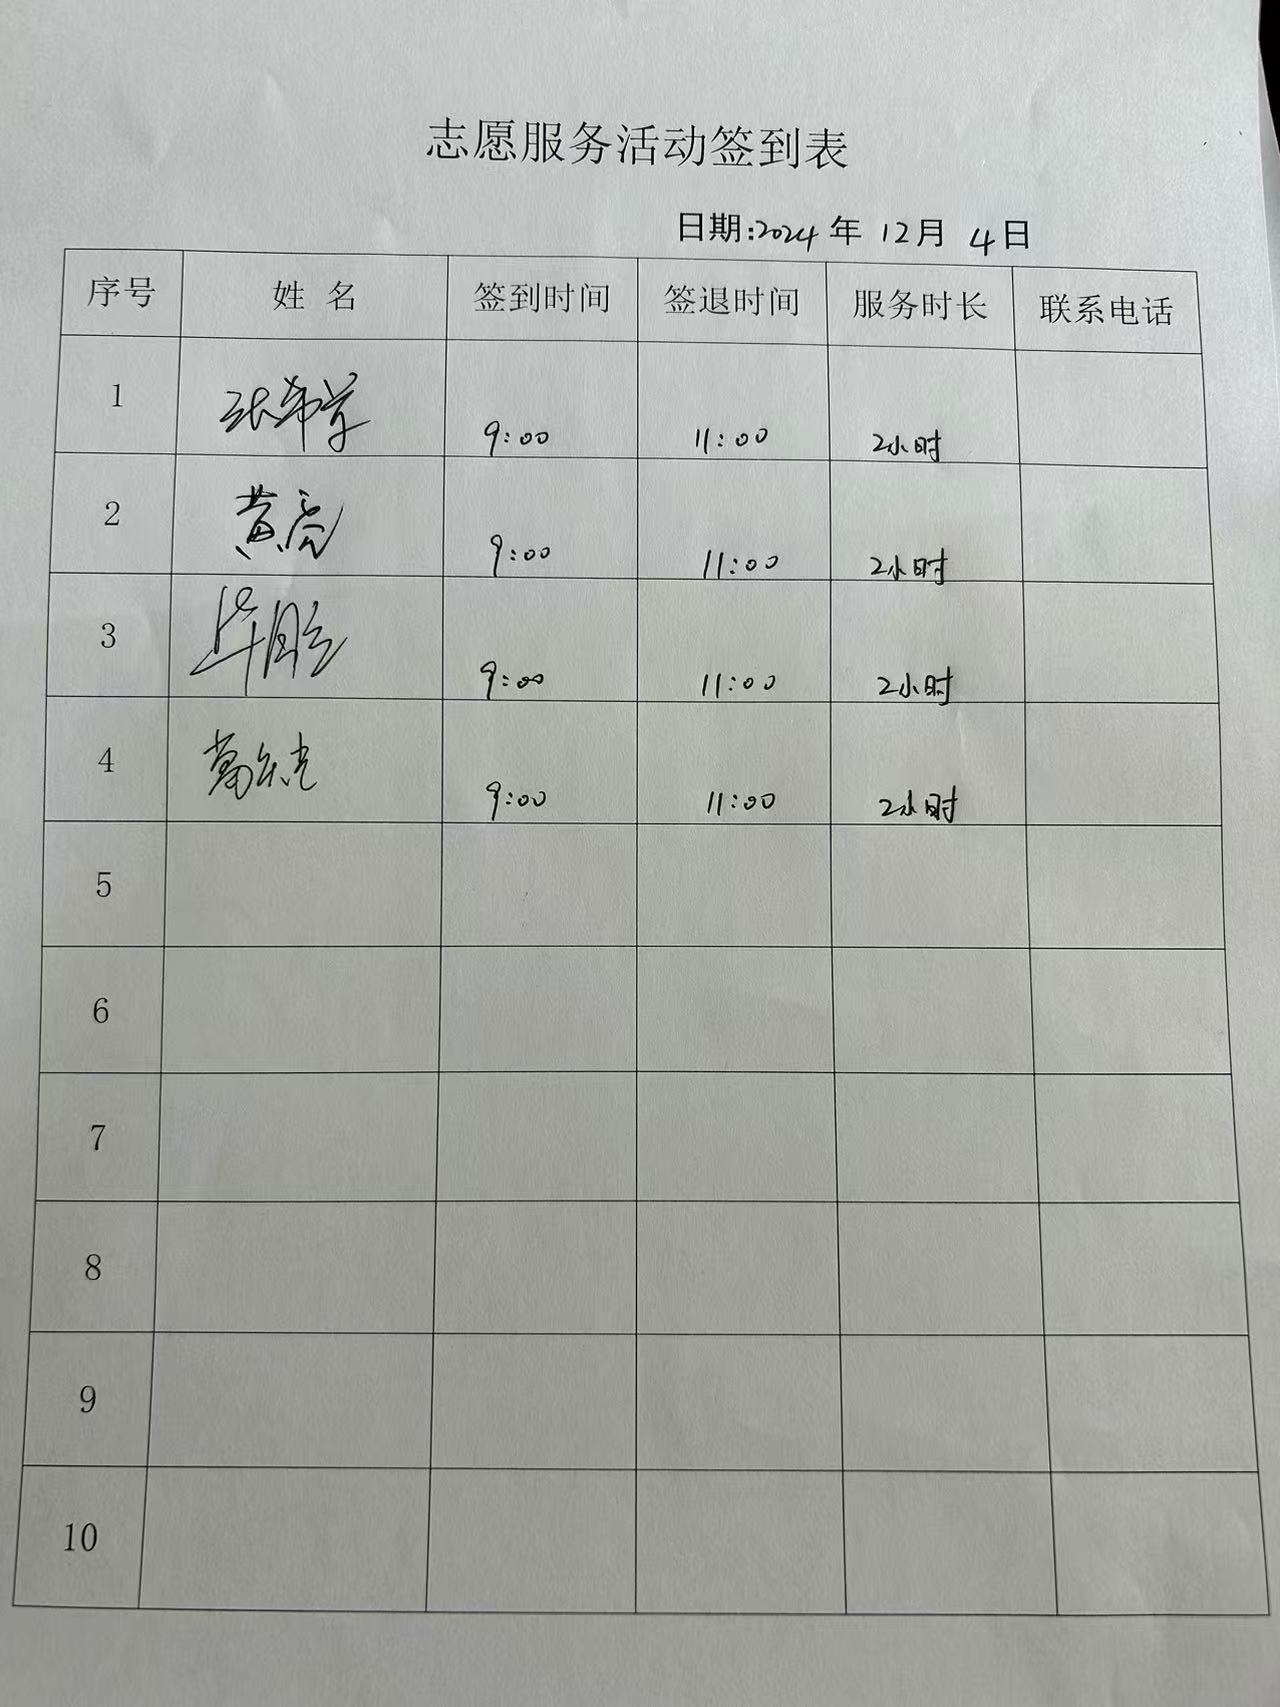 志愿服务活动签到表
日期:2024年 12月 4日
序号 姓 名 签到时间 签退时间 服务时长 联系电话
1 9:00 11:00 2小时
2 黄亮 9:00 11:00 2小时
3 9:00 11:00 2小时
4 9:00 11:00 2小时
5
6
7
8
9
10